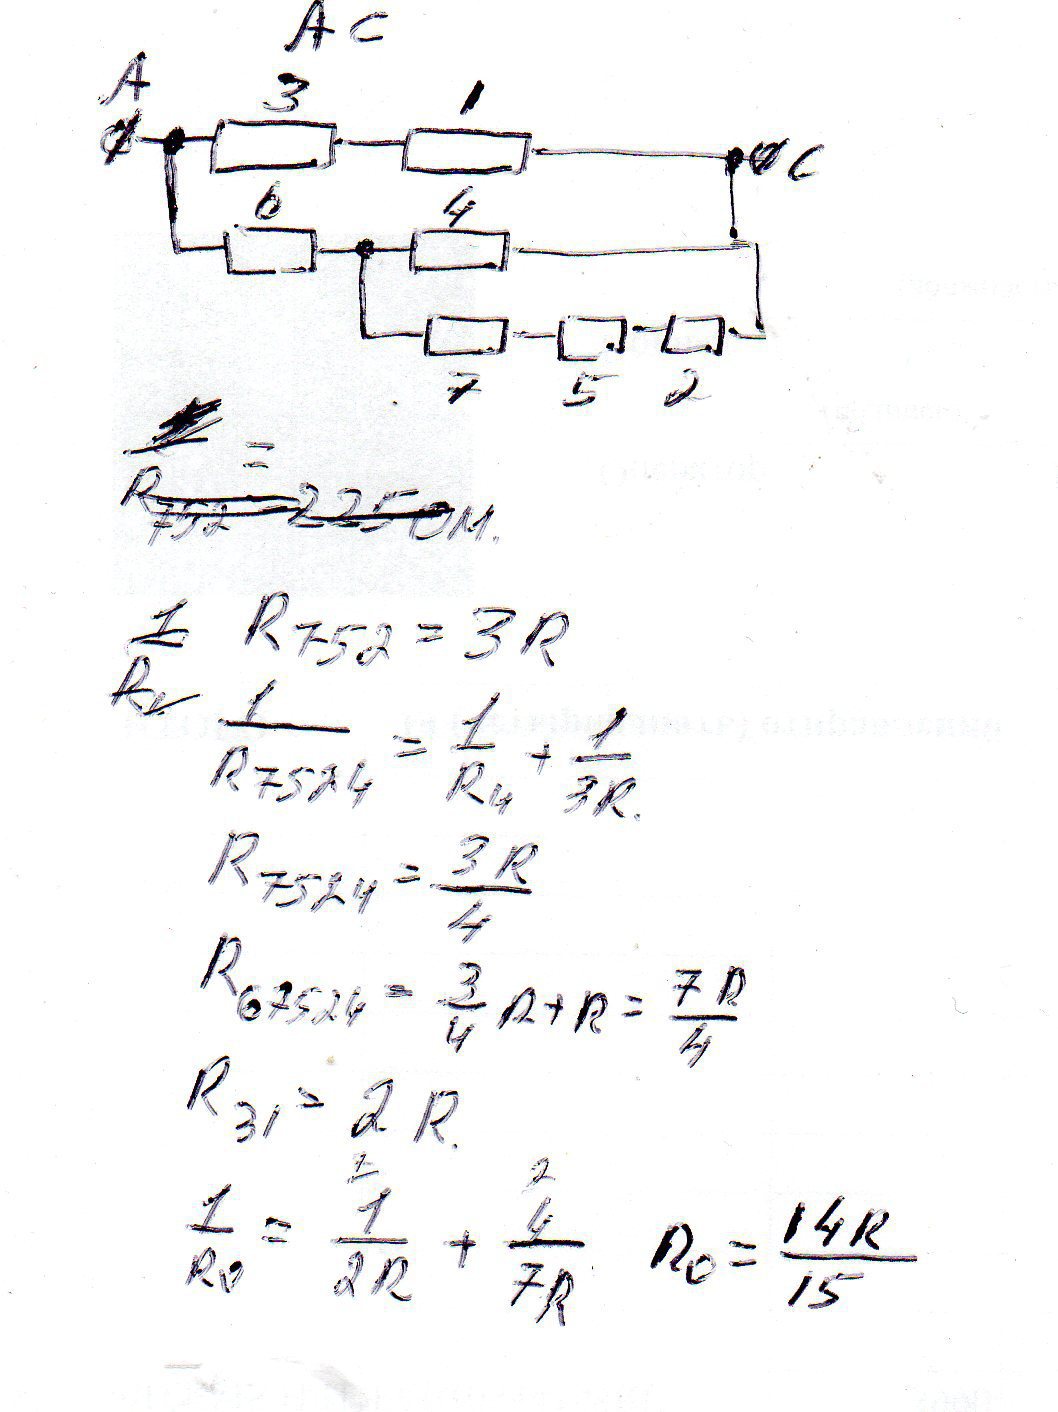 A C
A
3 1
C
6 4
7 5 2
=
R752 = 225 ОМ.
1 R752 = 3R
R
1/R7524 = 1/R4 + 1/3R.
R7524 = 3R/4
R67524 = 3/4 R + R = 7R/4
R31 = 2R.
7 2
1/R0 = 1/2R + 4/7R R0 = 14R/15